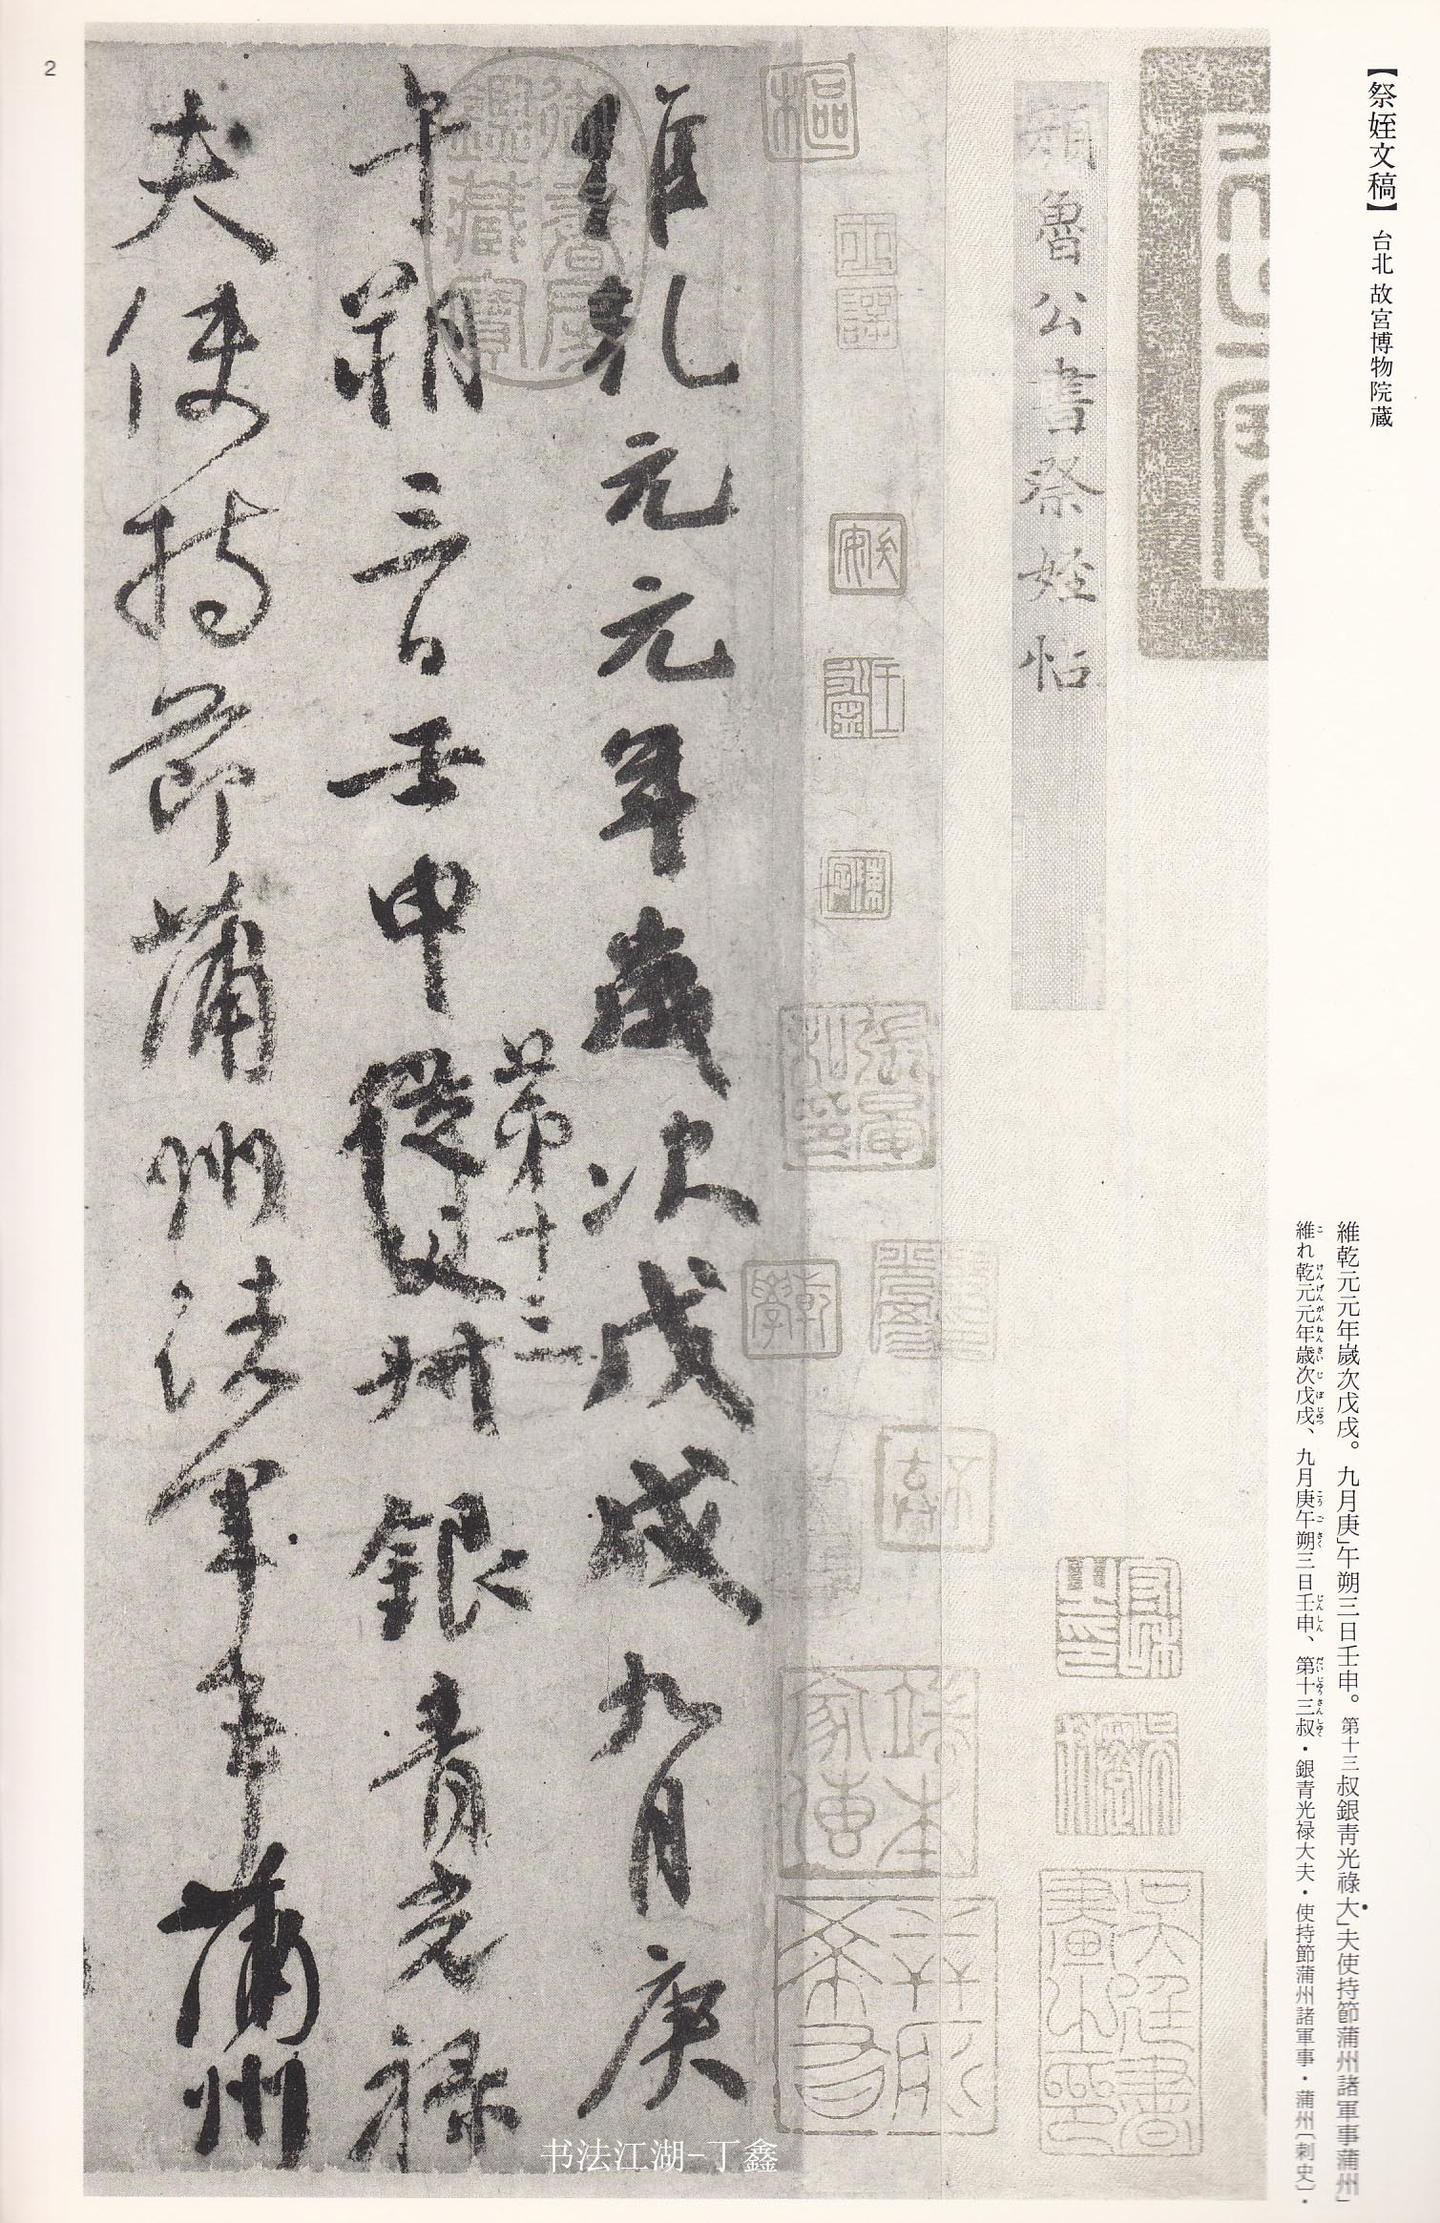 【祭姪文稿】 台北 故宮博物院蔵
維乾元元年嵗次戊戌。九月庚」午朔三日壬申。第十三叔銀青光祿大」夫使持節蒲州諸軍事蒲州」
維れ乾元元年歳次戊戌、九月庚午朔三日壬申、第十三叔・銀青光禄大夫・使持節蒲州諸軍事・蒲州〔刺史〕・
顔魯公書祭姪帖
樞
維乾元元年歲次戊戌九月庚
午朔三日壬申
第十三
從父叔銀青光祿
夫使持節蒲州諸軍事蒲州
御書房鑑藏寶
2
书法江湖-丁鑫